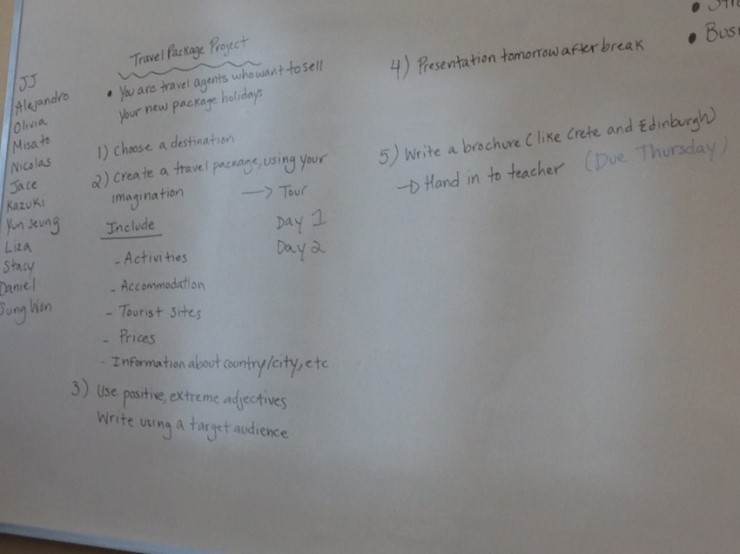 JJ
Alejandro
Olivia
Misato
Nicolas
Jace
Kazuki
Yun Seung
Liza
Stacy
Daniel
Sung Won
Travel Package Project
• You are travel agents who want to sell
your new package holidays
1) Choose a destination
2) Create a travel package, using your
imagination → Tour
Include Day 1
Day 2
- Activities
- Accommodation
- Tourist Sites
- Prices
- Information about country/city, etc
3) Use positive, extreme adjectives
Write using a target audience
4) Presentation tomorrow after break
5) Write a brochure (like Crete and Edinburgh)
→ Hand in to teacher (Due Thursday)